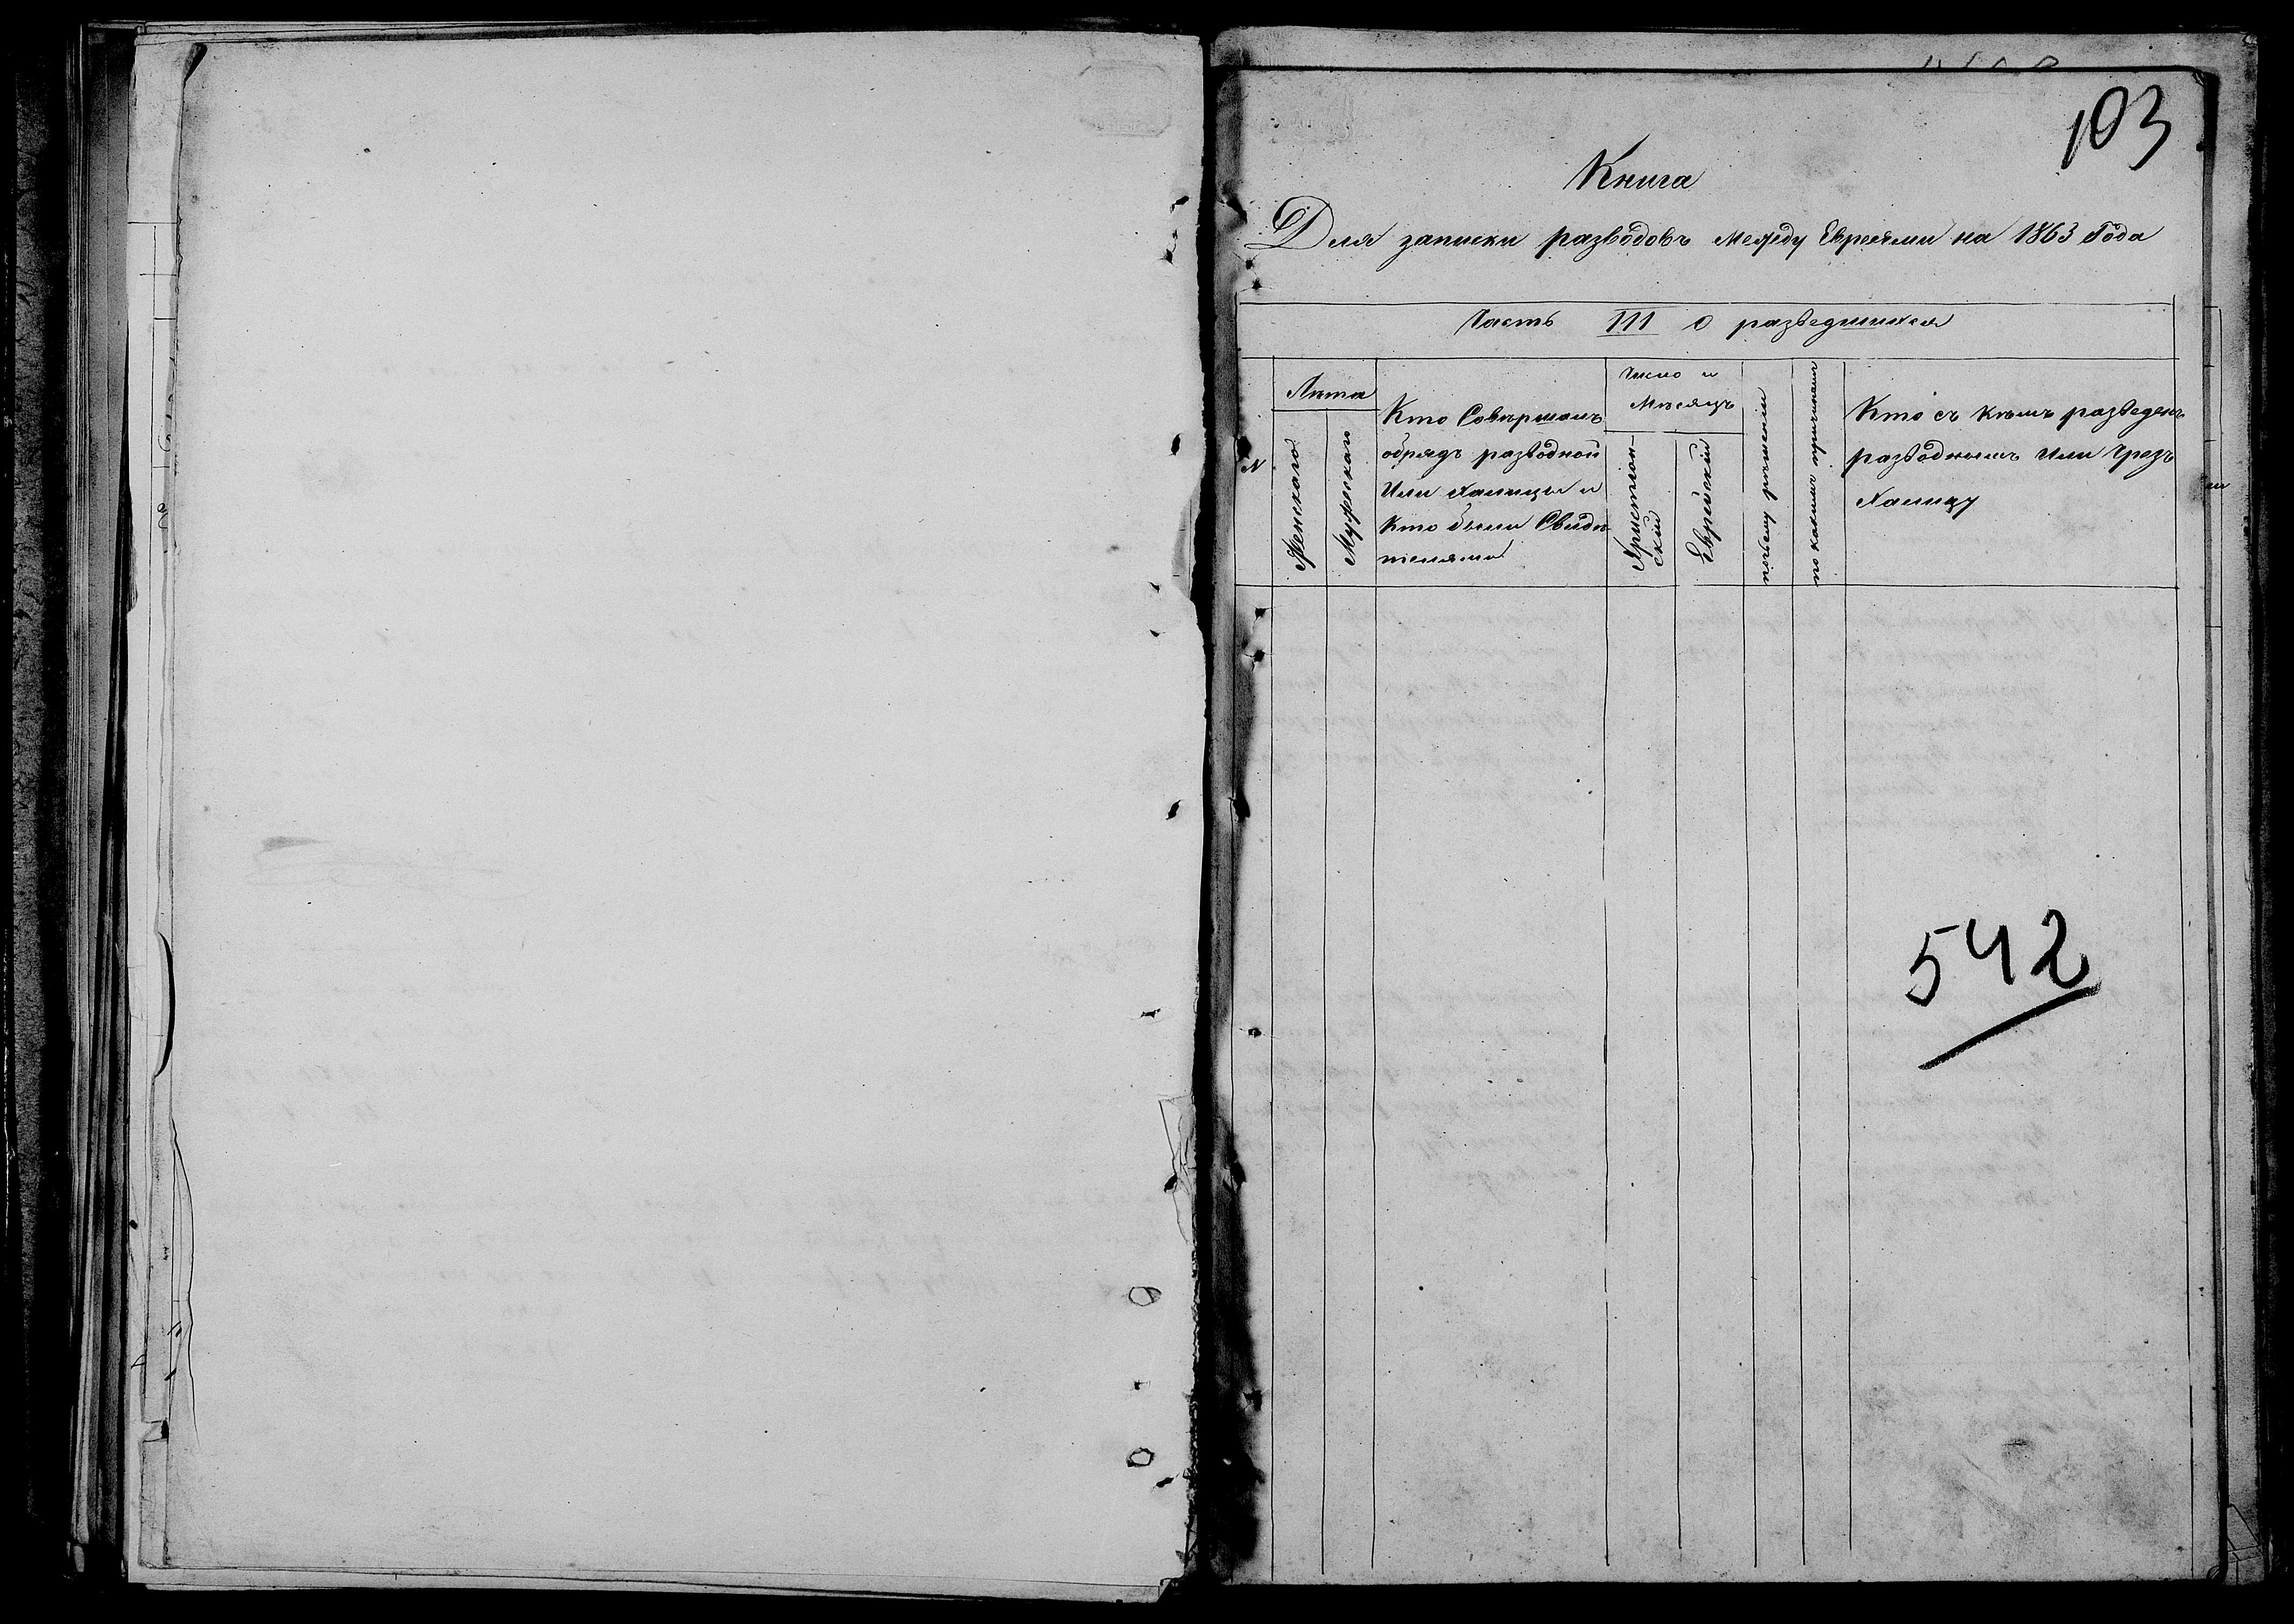 103
Книга
Для записки разводовъ между Евреями на 1863 Года
Часть III о разведшихся
N
Лѣта
Женскаго
Мужескаго
Кто Совершалъ
обрядъ разводной
Или халицы и
Кто были Свидѣ-
телями
Число и
Мѣсяцъ
Христіан-
скій
Еврейскій
почьему рѣшенію
по какимъ причинамъ
Кто съ кѣмъ разведенъ
разводнымъ Или Чрезъ
Халицу
542